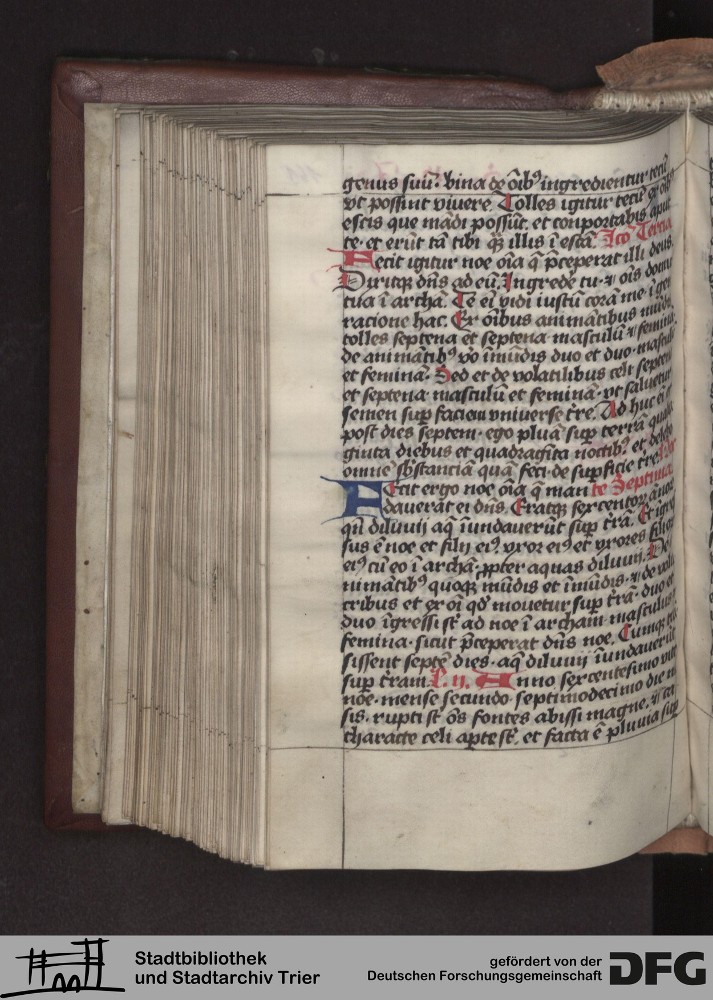 genus suū. bina de oīb9 ingredientur tecū
vt possint viuere Tolles igitur tecū ex oīb9
escis que mādi possūt. et conportabis aput
te. et erūt tā tibi q̄ȝ illis ī escā. Lcō Tercia
Fecit igitur noe oīa q̄ p̄ceperat illi deus.
Dixitqȝ dn̄s ad eū. Ingrede tu. ⁊ oīs domus
tua ī archā. Te eī vidi iustū corā me ī gen
racione hac. Ex oībus animātibus mūdis
tolles septena et septena. masculū ⁊ feminā
de animātib9 vo īmūdis duo et duo. masculū
et feminā. Sed et de volatilibus celi septena
et septena. masculū et feminā. vt saluetur
semen sup faciem vniuerse tr̄e. Ad huc eī ⁊
post dies septem. ego pluā sup terrā quadra
ginta diebus et quadragīta noctib9. et delebo
omne sb̄stanciā quā feci. de supficie tr̄e.
Fecit ergo noe oīa q̄ man te Septima
dauerat ei dn̄s. Eratqȝ sexcentorū ānorū
qn̄ diluuij aq̄ īundauerūt sup tr̄ā. Et īgres
sus ē noe et filij ei9. vxor ei9 et vxores filiorū
ei9 cū eo ī archā. ꝓpter aquas diluuij. De
nimātib9 quoqȝ mūdis et īmūdis. ⁊ de vola
tribus et ex oī qd̄ mouetur sup tr̄ā. duo et
duo īgressi st̄ ad noe ī archam. masculus ⁊
femina. sicut p̄ceperat dn̄s noe. Cumqȝ trā
sissent septē dies. aq̄ diluuij īundauerūt
sup tr̄am. L. ij. Anno sexcentesimo vite
noe. mense secundo. septimodecimo die mē
sis. rupti st̄ oēs fontes abissi magne. ⁊ ca
tharacte celi apte st̄. et facta ē pluuia sup
Stadtbibliothek
und Stadtarchiv Trier
gefördert von der
Deutschen Forschungsgemeinschaft
DFG